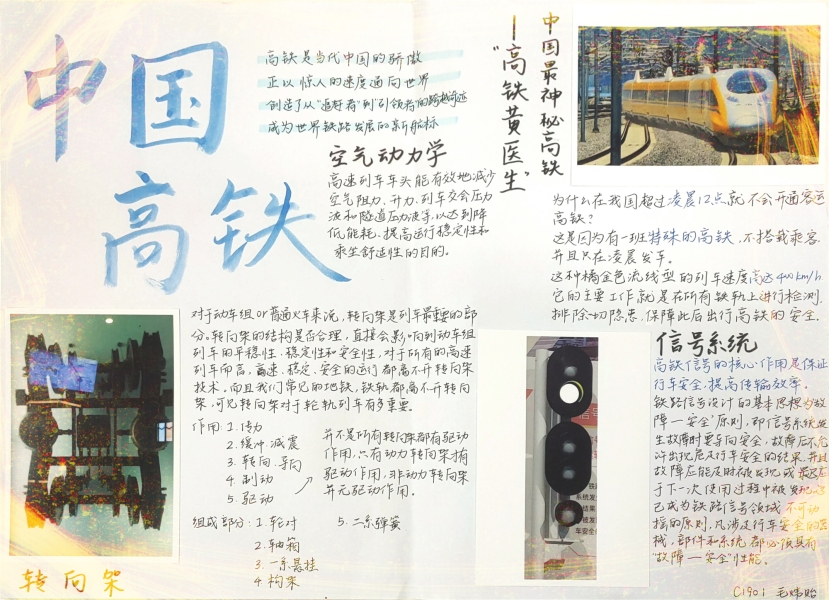 中国
高铁
高铁是当代中国的骄傲
正以惊人的速度通向世界
创造了从“追赶者”到“引领者”的跨越奇迹
成为世界铁路发展的新航标
空气动力学
高速列车车头能有效地减少
空气阻力、升力、列车交会压力
波和隧道压力波等,以达到降
低能耗、提高运行稳定性和
乘坐舒适性的目的。
中国最神秘高铁
—“高铁黄医生”
为什么在我国超过凌晨12点就不会开通客运
高铁?
这是因为有一班特殊的高铁,不搭载乘客
并且只在凌晨发车。
这种橘金色流线型的列车速度高达400km/h.
它的主要工作就是在所有铁轨上进行检测,
排除一切隐患,保障此后出行高铁的安全。
对于动车组or普通火车来说,转向架是列车最重要的部
分。转向架的结构是否合理,直接会影响到动车组
列车的平稳性、稳定性和安全性,对于所有的高速
列车而言,高速、稳定、安全的运行都离不开转向架
技术。而且我们常见的地铁,铁轨都离不开转向
架,可见转向架对于轮轨列车有多重要。
作用:1.传力
2.缓冲、减震
3.转向、导向
4.制动
5.驱动
并不是所有转向架都有驱动
作用,只有动力转向架才有
驱动作用,非动力转向架
并无驱动作用。
组成部分:1.轮对
2.轴箱
3.一系悬挂
4.构架
5.二系弹簧
转向架
信号系统
高铁信号的核心作用是保证
行车安全,提高传输效率。
铁路信号设计的基本思想为故
障—安全”原则,即信号系统发
生故障时要导向安全,故障后不允
许出现危及行车安全的结果,并且
故障应能及时被发现或最迟在
于下一次使用过程中被发现,这
已成为铁路信号领域不可动
摇的原则,凡涉及行车安全的器
械、部件和系统都必须具有
“故障—安全”性能。
C1901 毛炜贻